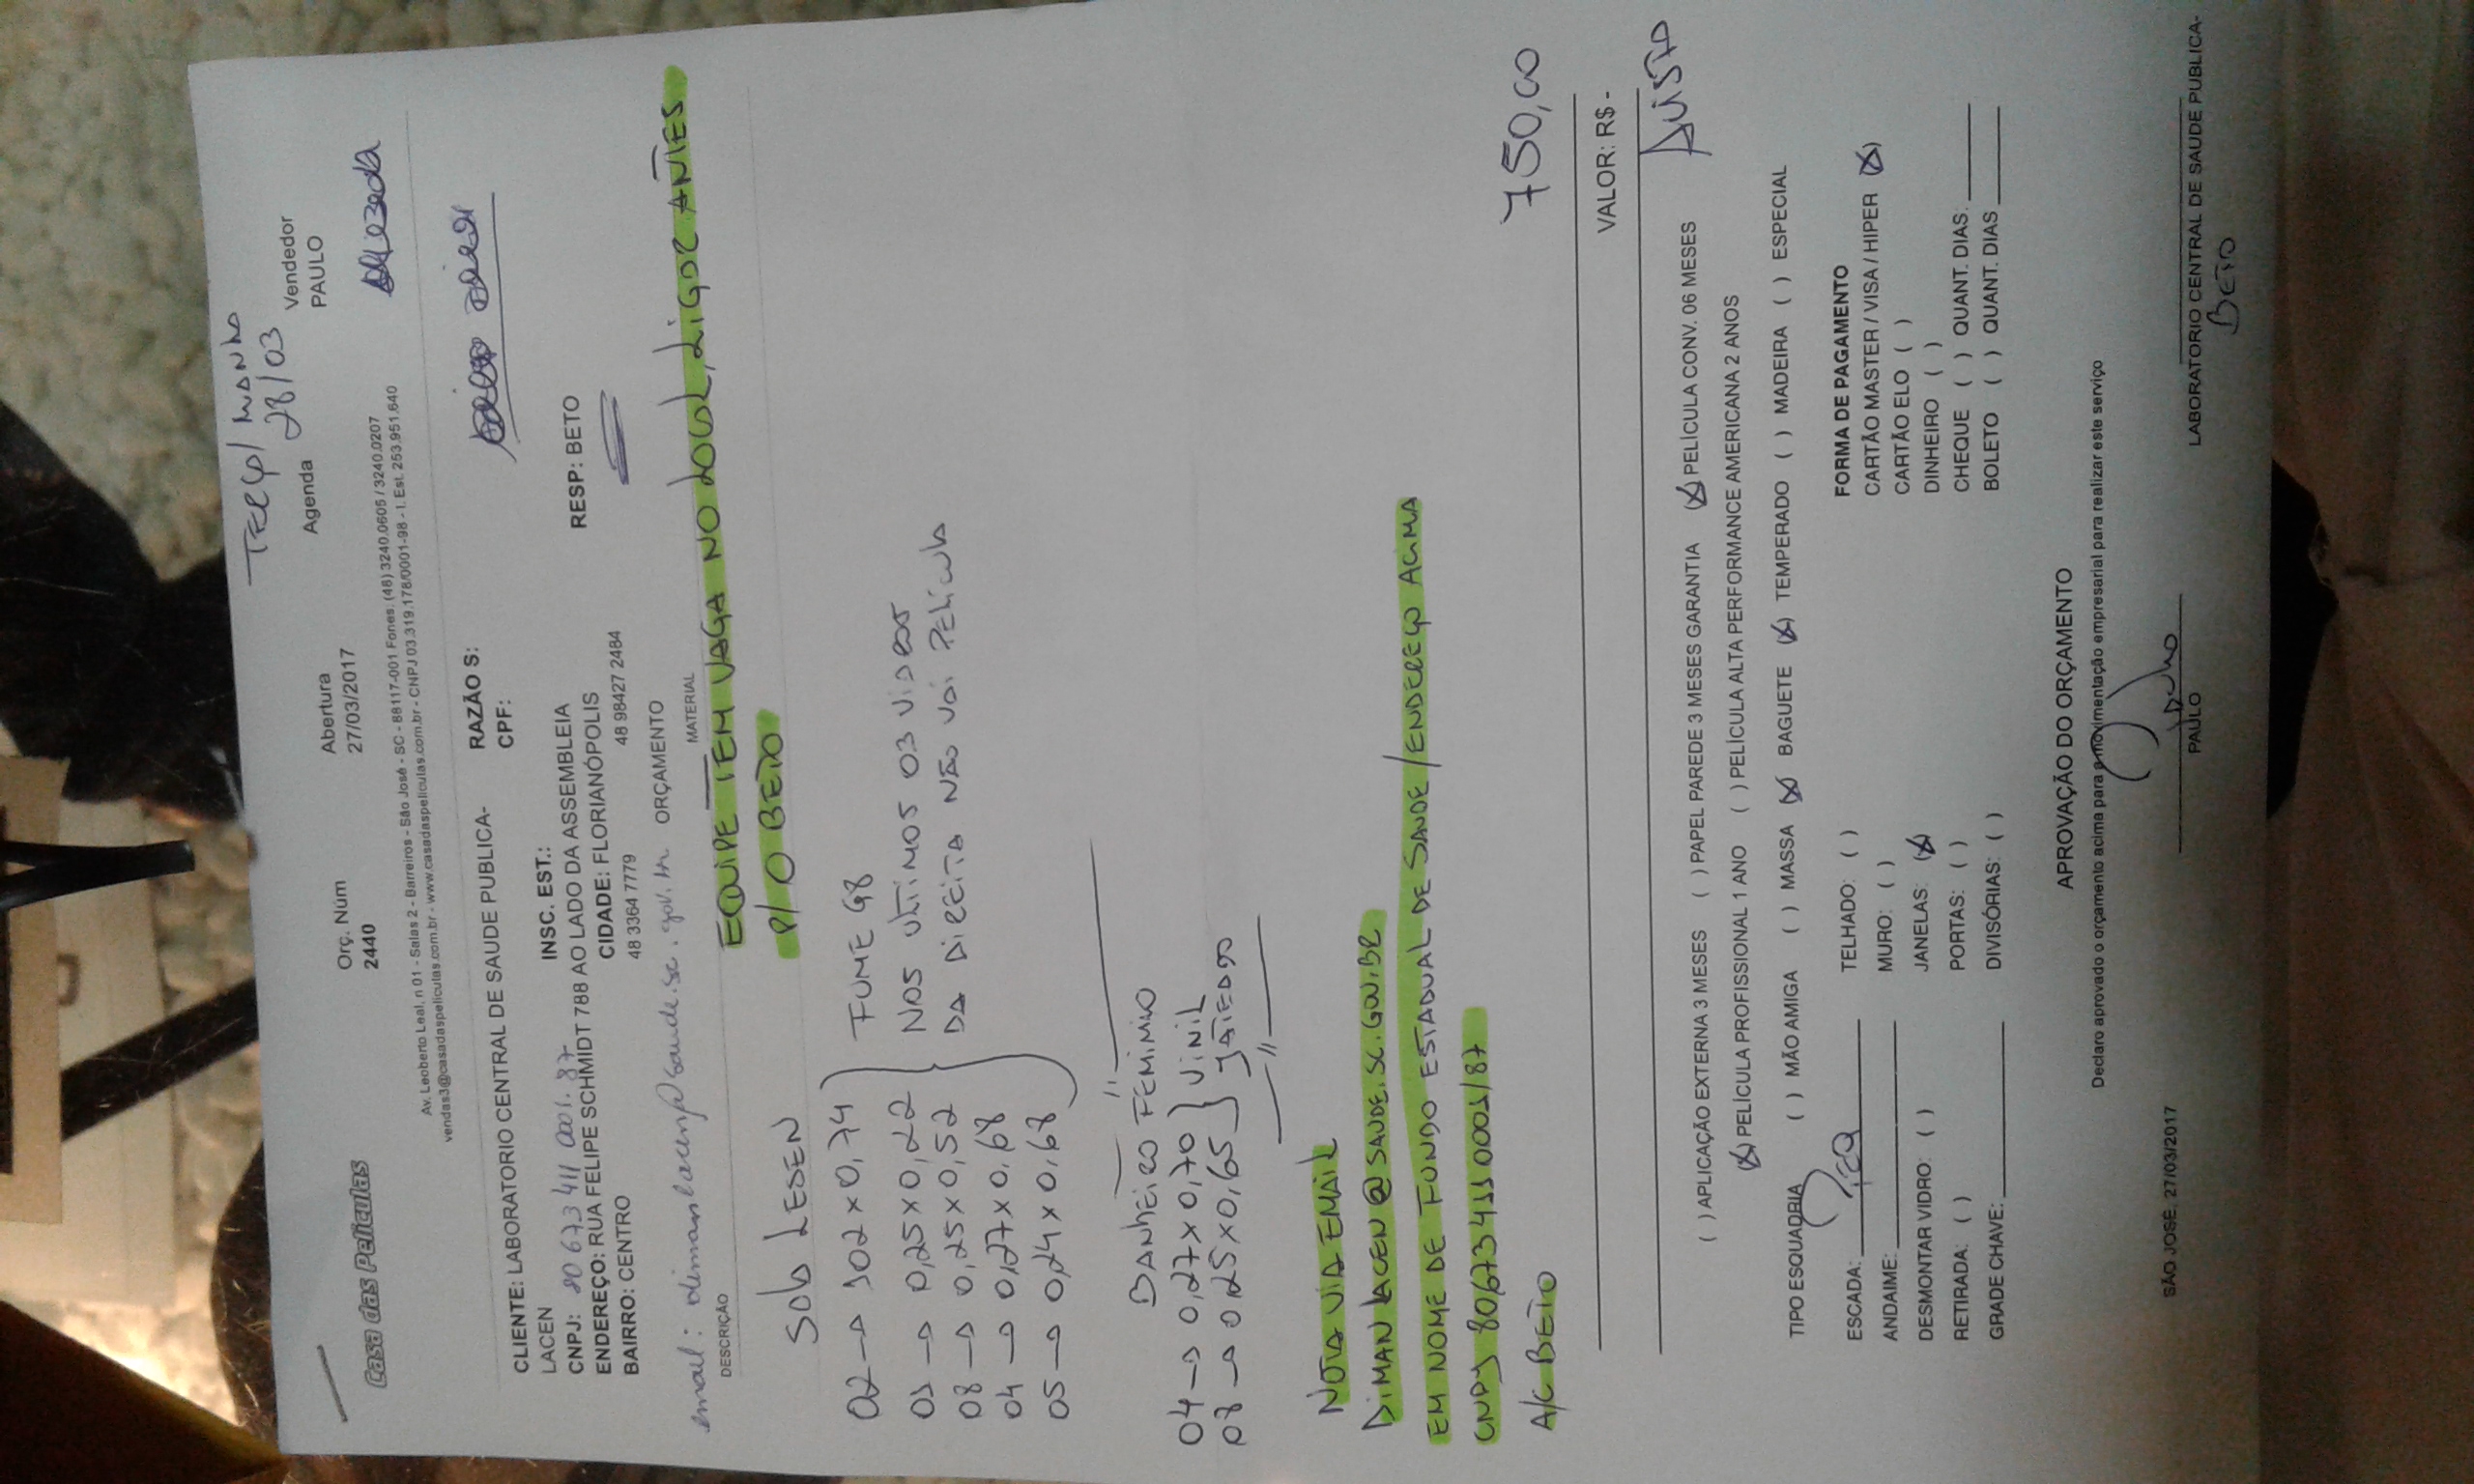 TERÇA/ MANHÃ
28/03
Casa das Películas
Orç. Núm Abertura Agenda Vendedor
2440 27/03/2017 PAULO
Av. Leoberto Leal, n 01 - Salas 2 - Barreiros - São José - SC - 88117-001 Fones: (48) 3240.0605 / 3240.0207
vendas3@casadaspeliculas.com.br - www.casadaspeliculas.com.br - CNPJ 03.319.178/0001-98 - I. Est. 253.951.640
CLIENTE: LABORATORIO CENTRAL DE SAUDE PUBLICA- RAZÃO S:
LACEN CPF:
CNPJ: 80 673 411 0001.87 INSC. EST.: RESP: BETO
ENDEREÇO: RUA FELIPE SCHMIDT 788 AO LADO DA ASSEMBLEIA
BAIRRO: CENTRO CIDADE: FLORIANÓPOLIS
48 3364 7779 48 98427 2484
email: dimanlacen@saude.sc.gov.br ORÇAMENTO
DESCRIÇÃO MATERIAL
EQUIPE TEM VAGA NO LOCAL, LIGAR ANTES
P/ O BETO
02 → 102 x 0,74 FUME G8
01 → 0,25 x 0,22 NOS ULTIMOS 03 VIDROS
08 → 0,25 x 0,52 DA DIREITA NÃO VAI PELICULA
04 → 0,27 x 0,68
05 → 0,24 x 0,68
BANHEIRO FEMININO
04 → 0,27 x 0,70 VINIL
08 → 0,25 x 0,65 JATEADO
NOTA VIA EMAIL
DIMANLACEN@SAUDE.SC.GOV.BR
EM NOME DE FUNDO ESTADUAL DE SAUDE / ENDEREÇO ACIMA
CNPJ 80.673 411 0001/87
A/C BETO
750,00
VALOR: R$ -
( ) APLICAÇÃO EXTERNA 3 MESES ( ) PAPEL PAREDE 3 MESES GARANTIA (X) PELÍCULA CONV. 06 MESES
(X) PELÍCULA PROFISSIONAL 1 ANO ( ) PELÍCULA ALTA PERFORMANCE AMERICANA 2 ANOS
TIPO ESQUADRIA ( ) MÃO AMIGA ( ) MASSA (X) BAGUETE (X) TEMPERADO ( ) MADEIRA ( ) ESPECIAL
ESCADA: TELHADO: ( ) FORMA DE PAGAMENTO
ANDAIME: MURO: ( ) CARTÃO MASTER / VISA / HIPER (X)
DESMONTAR VIDRO: ( ) JANELAS: (X) CARTÃO ELO ( )
RETIRADA: ( ) PORTAS: ( ) DINHEIRO ( )
GRADE CHAVE: DIVISÓRIAS: ( ) CHEQUE ( ) QUANT. DIAS:
BOLETO ( ) QUANT. DIAS
APROVAÇÃO DO ORÇAMENTO
Declaro aprovado o orçamento acima para a movimentação empresarial para realizar este serviço
SÃO JOSÉ, 27/03/2017
Paulo
PAULO LABORATORIO CENTRAL DE SAUDE PUBLICA-
BETO